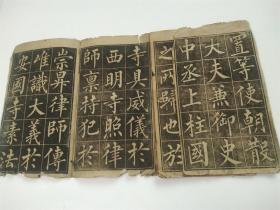 置等使朝散
大夫兼御史
中丞上柱國
之所歸也於
寺具威儀於
西明寺照律
師禀持犯於
崇昇律師傳
唯識大義於
安國寺素法